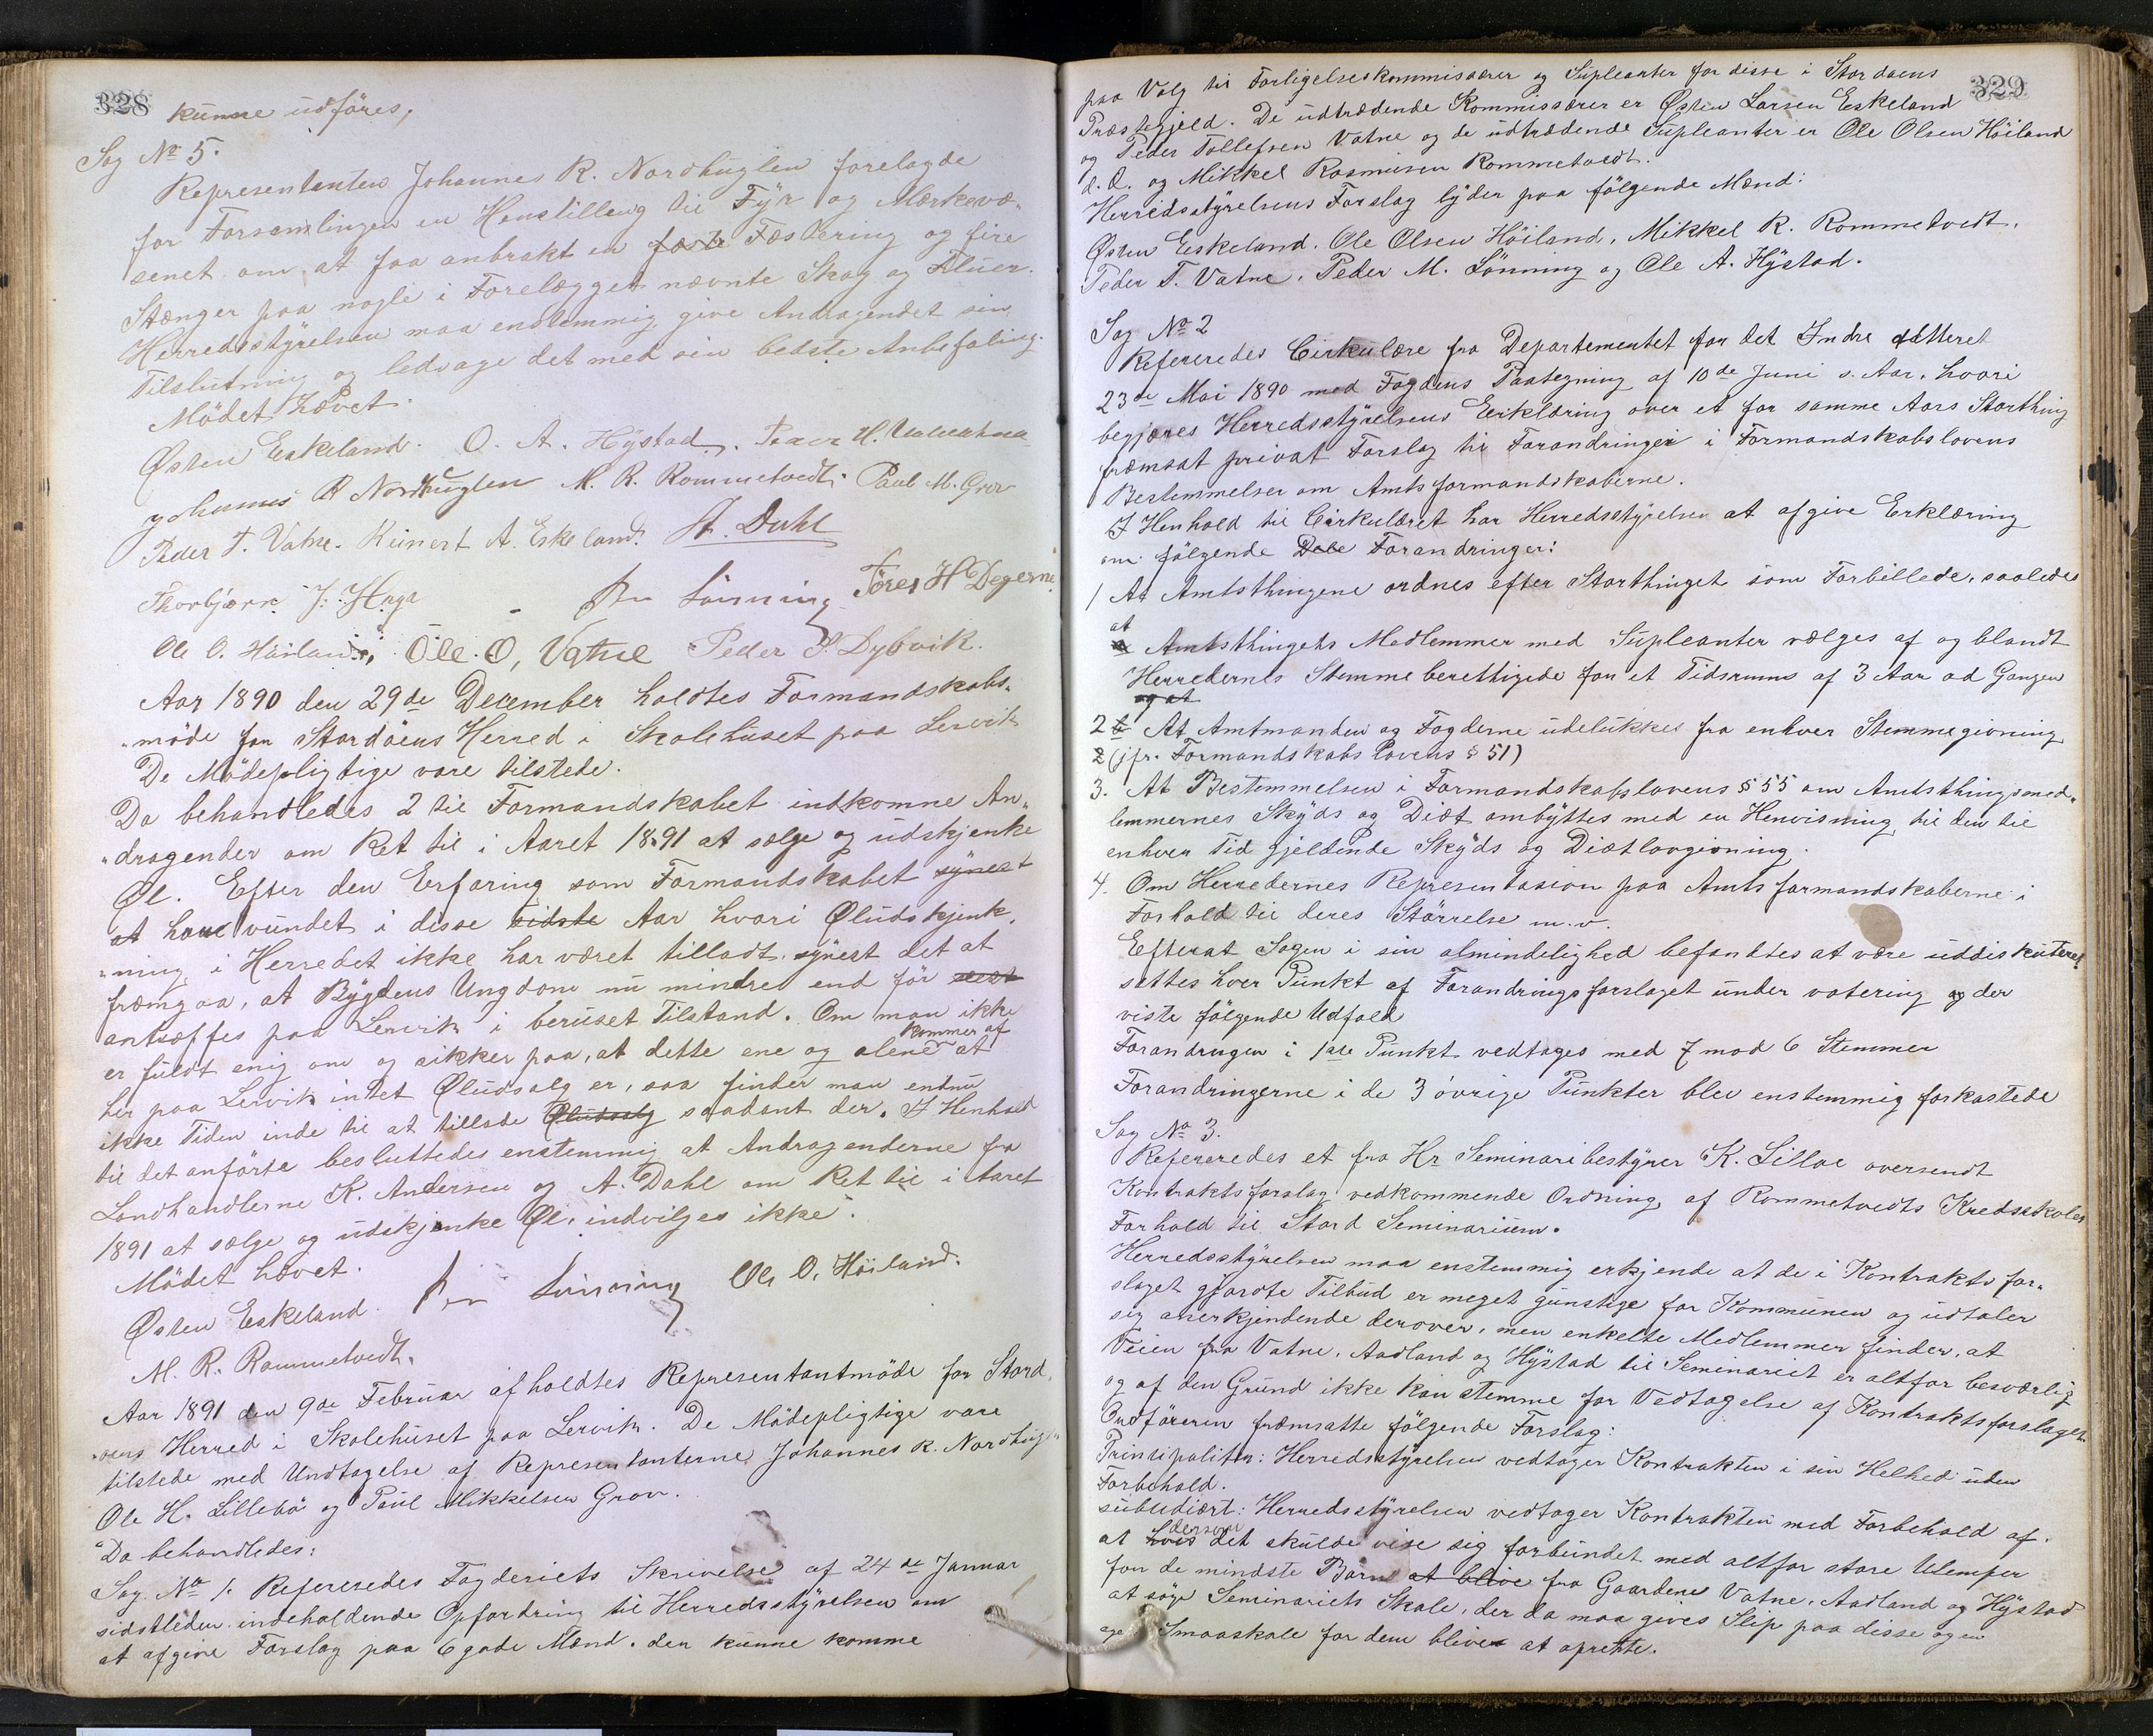 328
kunne udföres,
Sag No 5.
Representanten Johannes R. Nordhuglen forelagde
for Forsamlingen en Henstilling til Fÿr og Mærkevæ-
senet om at faa anbrakt en faste Fæstering og fire
Stænger paa nogle i Forelægget nævnte Skag og Fluer.
Herredsstÿrelsen maa enstemmig give Andragendet sin
Tilslutning og ledsage det med sin bedste Anbefaling.
Mödet hævet.
Østen Eskeland. O. A. Hÿstad. Peder H.
Johannes R Nordhuglen M. R. Rommetvedt. Paul M. Grov
Peder T. Vatne. Reinert A. Eskeland. A. Dahl
Thorbjørn J. Haga Pr Lönning Töres H Degerne.
Ole O. Höiland. Ole. O, Vatne Peder P. Dybvik.
Aar 1890 den 29de December holdtes Formandskabs-
-möde for Stordöens Herred i Skolehuset paa Lervik
De Mödepligtige vare tilstede.
Da behandledes 2 til Formandskabet indkomne An-
-dragender om Ret til i Aaret 1891 at sælge og udskjenke
Øl. Efter den Erfaring som Formandskabet sÿnest
at have vundet i disse sidste Aar hvori Øludskjenk-
-ning i Herredet ikke har været tilladt, sÿnest det at
fremgaa, at Bÿgdens Ungdom nu mindre end för
antræffes paa Lervik i beruset Tilstand. Om man ikke
er fuldt enig om og sikker paa, at dette ene og alene kommer af at
her paa Lervik intet Øludsalg er, saa finder man endnu
ikke Tiden inde til at tillade Øludsalg saadant der. I Henhold
til det anförte besluttedes enstemmig at Andragenderne fra
Landhandlerne K. Andersen og A. Dahl om Ret til i Aaret
1891 at sælge og udskjenke Øl, indvilges ikke.
Mödet hævet.
Østen Eskeland. Pr Lönning Ole O. Höiland.
M. R. Rommetvedt.
Aar 1891 den 9de Februar afholdtes Representantmöde for Stord-
-öens Herred i Skolehuset paa Lervik. De Mödepligtige vare
tilstede med Undtagelse af Representanterne Johannes R. Nordhugl-
Ole H. Lillebö og Paul Mikkelsen Grov.
Da behandledes:
Sag No 1. Refereredes Fogderiets Skrivelse af 24de Januar
sidstleden indeholdende Opfordring til Herredsstÿrelsen om
at afgive Forslag paa 6 gode Mænd, der kunne komme
329
paa Valg til Forligelseskommissærer og Supleanter for disse i Stordøens
Præstegjeld. De udtrædende Kommissærer er Østen Larsen Eskeland
og Peder Tollefsen Vatne og de udtrædende Supleanter er Ole Olsen Höiland
d. O. og Mikkel Rasmusen Rommetvedt.
Herredsstÿrelsens Forslag lÿder paa fölgende Mænd:
Østen Eskeland, Ole Olsen Höiland, Mikkel R. Rommetvedt,
Peder T. Vatne, Peder M. Lönning og Ole A. Hÿstad.
Sag No 2
Refereredes Cirkulære fra Departementet for det Indre datteret
23de Mai 1890 med Fogdens Paategning af 10de Juni s. Aar, hvori
begjæres Herredsstÿrelsens Erklæring over et for samme Aars Storthing
fremsat privat Forslag til Forandringer i Formandskabslovens
Bestemmelser om Amtsformandskaberne.
I Henhold til Cirkulæret har Herredsstÿrelsen at afgive Erklæring
om fölgende Dele Forandringer:
1 At Amtsthingene ordnes efter Storthinget som Forbillede, saaledes
at
a Amtsthingets Medlemmer med Supleanter vælges af og blandt
Herredernes Stemmeberettigede for et Tidsrum af 3 Aar ad Gangen
og at
2 b At Amtmanden og Fogderne udelukkes fra enhver Stemmegivning
2 (jfr. Formandskabslovens § 51)
3. At Bestemmelsen i Formandskabslovens § 55 om Amtsthingsmed-
lemmernes Skÿds og Diæt ombÿttes med en Henvisning til den til
enhver Tid gjeldende Skÿds og Diætlovgivning.
4. Om Herredernes Representasion paa Amtsformandskaberne i
Forhold til deres Störrelse m. v.
Efterat Sagen i sin almindelighed befandtes at være uddiskuteret
sattes hver Punkt af Forandringsforslaget under votering og der
viste fölgende Udfald
Forandringen i 1ste Punkt vedtages med 7 mod 6 Stemmer
Forandringerne i de 3 övrige Punkter blev enstemmig forkastede
Sag No 3.
Refereredes et fra Hr Seminaribestÿrer K. Lilloe oversendt
Kontraktsforslag vedkommende Ordning af Rommetvedts Kredsskoles
Forhold til Stord Seminarium.
Herredsstÿrelsen maa enstemmig erkjende at de i Kontraktsfor-
slaget gjordte Tilbud er meget gunstige for Kommunen og udtaler
sig anerkjendende derover, men enkelte Medlemmer finder, at
Veien fra Vatne, Aadland og Hÿstad til Seminariet er altfor besværlig
og af den Grund ikke kan stemme for Vedtagelse af Kontraktsforslaget.
Ordföreren fremsatte fölgende Forslag:
Prinsipaliter: Herredsstÿrelsen vedtager Kontrakten i sin Helhed uden
Forbehold.
subsidiært: Herredsstÿrelsen vedtager Kontrakten med Forbehold af,
at hvis dersom det skulde vise sig forbundet med altfor store Ulemper
for de mindste Børn at blive fra Gaardene Vatne, Aadland og Hÿstad
at söge Seminariets Skole, der da maa gives Slip paa disse og en
Smaaskole for dem bliver at oprette.